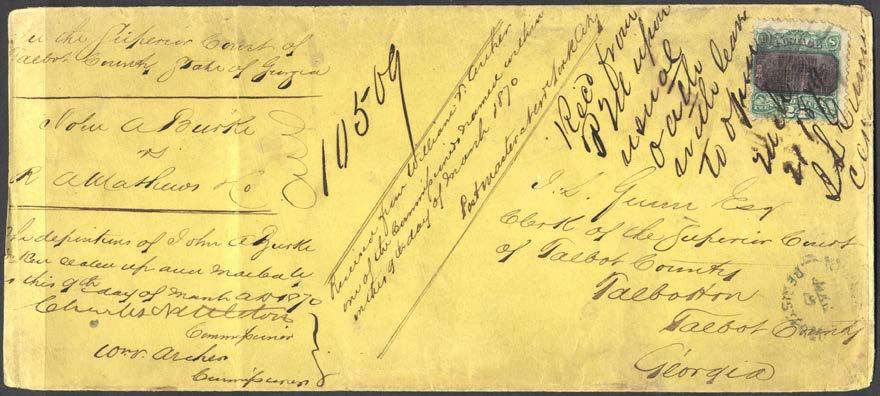 In the Superior Court of
Talbot County State of Georgia
John A Burke
vs
R A Mathews & Co
The depositions of John A Burke
taken sealed up and mailed
this 9th day of March AD 1870
Charles Nettleton
Commissioner
Wm. Archer
Commissioner
10509
Received from William F. Archer
one of the Commissioners named within
on this 9th day of March 1870
Postmaster New York City
Recd from
P M upon
usual
oath
with leave
to open
21
J. L. Gunn Esq
Clerk of the Superior Court
of Talbot County
Talbotton
Talbot County
Georgia
POSTAGE
REGIS
MAR